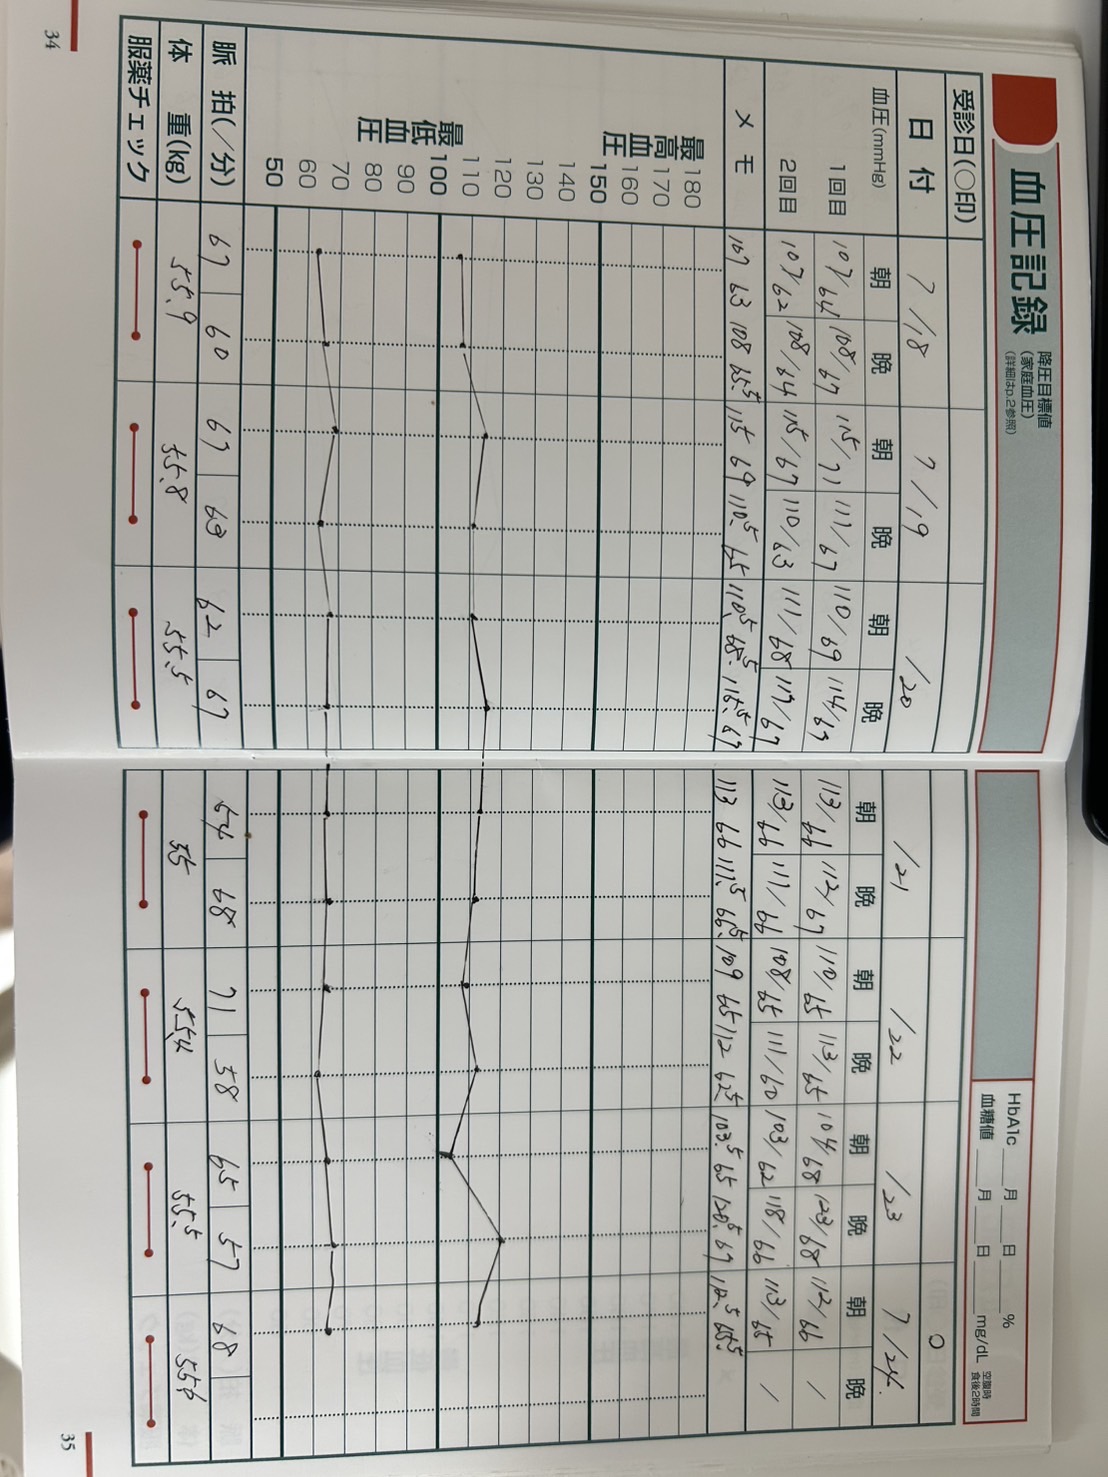 血圧記録
降圧目標値
(家庭血圧)
(詳細はp.2参照)
HbA1c 月 日 %
血糖値 月 日 mg/dL 空腹時 食後2時間
受診日(○印) ○
日付 7/18 7/19 /20 /21 /22 /23 7/24
血圧(mmHg) 朝 晩 朝 晩 朝 晩 朝 晩 朝 晩 朝 晩 朝 晩
1回目 107/64 108/67 115/71 111/67 110/69 114/67 113/66 112/67 110/65 113/65 104/68 123/68 112/66 /
2回目 107/62 108/64 115/67 110/63 111/68 117/67 113/66 111/66 108/65 111/60 103/62 118/66 113/65 /
メモ 107 63 108 65.5 115 69 110.5 65 110.5 68.5 115.5 67 113 66 111.5 66.5 109 65 112 62.5 103.5 65 120.5 67 112.5 65.5
最高血圧
180
170
160
150
140
130
120
110
100
最低血圧
90
80
70
60
50
脈拍(/分) 67 60 67 63 62 67 64 68 71 58 65 57 68
体重(kg) 55.9 55.8 55.5 55 55.4 55.5 55.6
服薬チェック
34
35